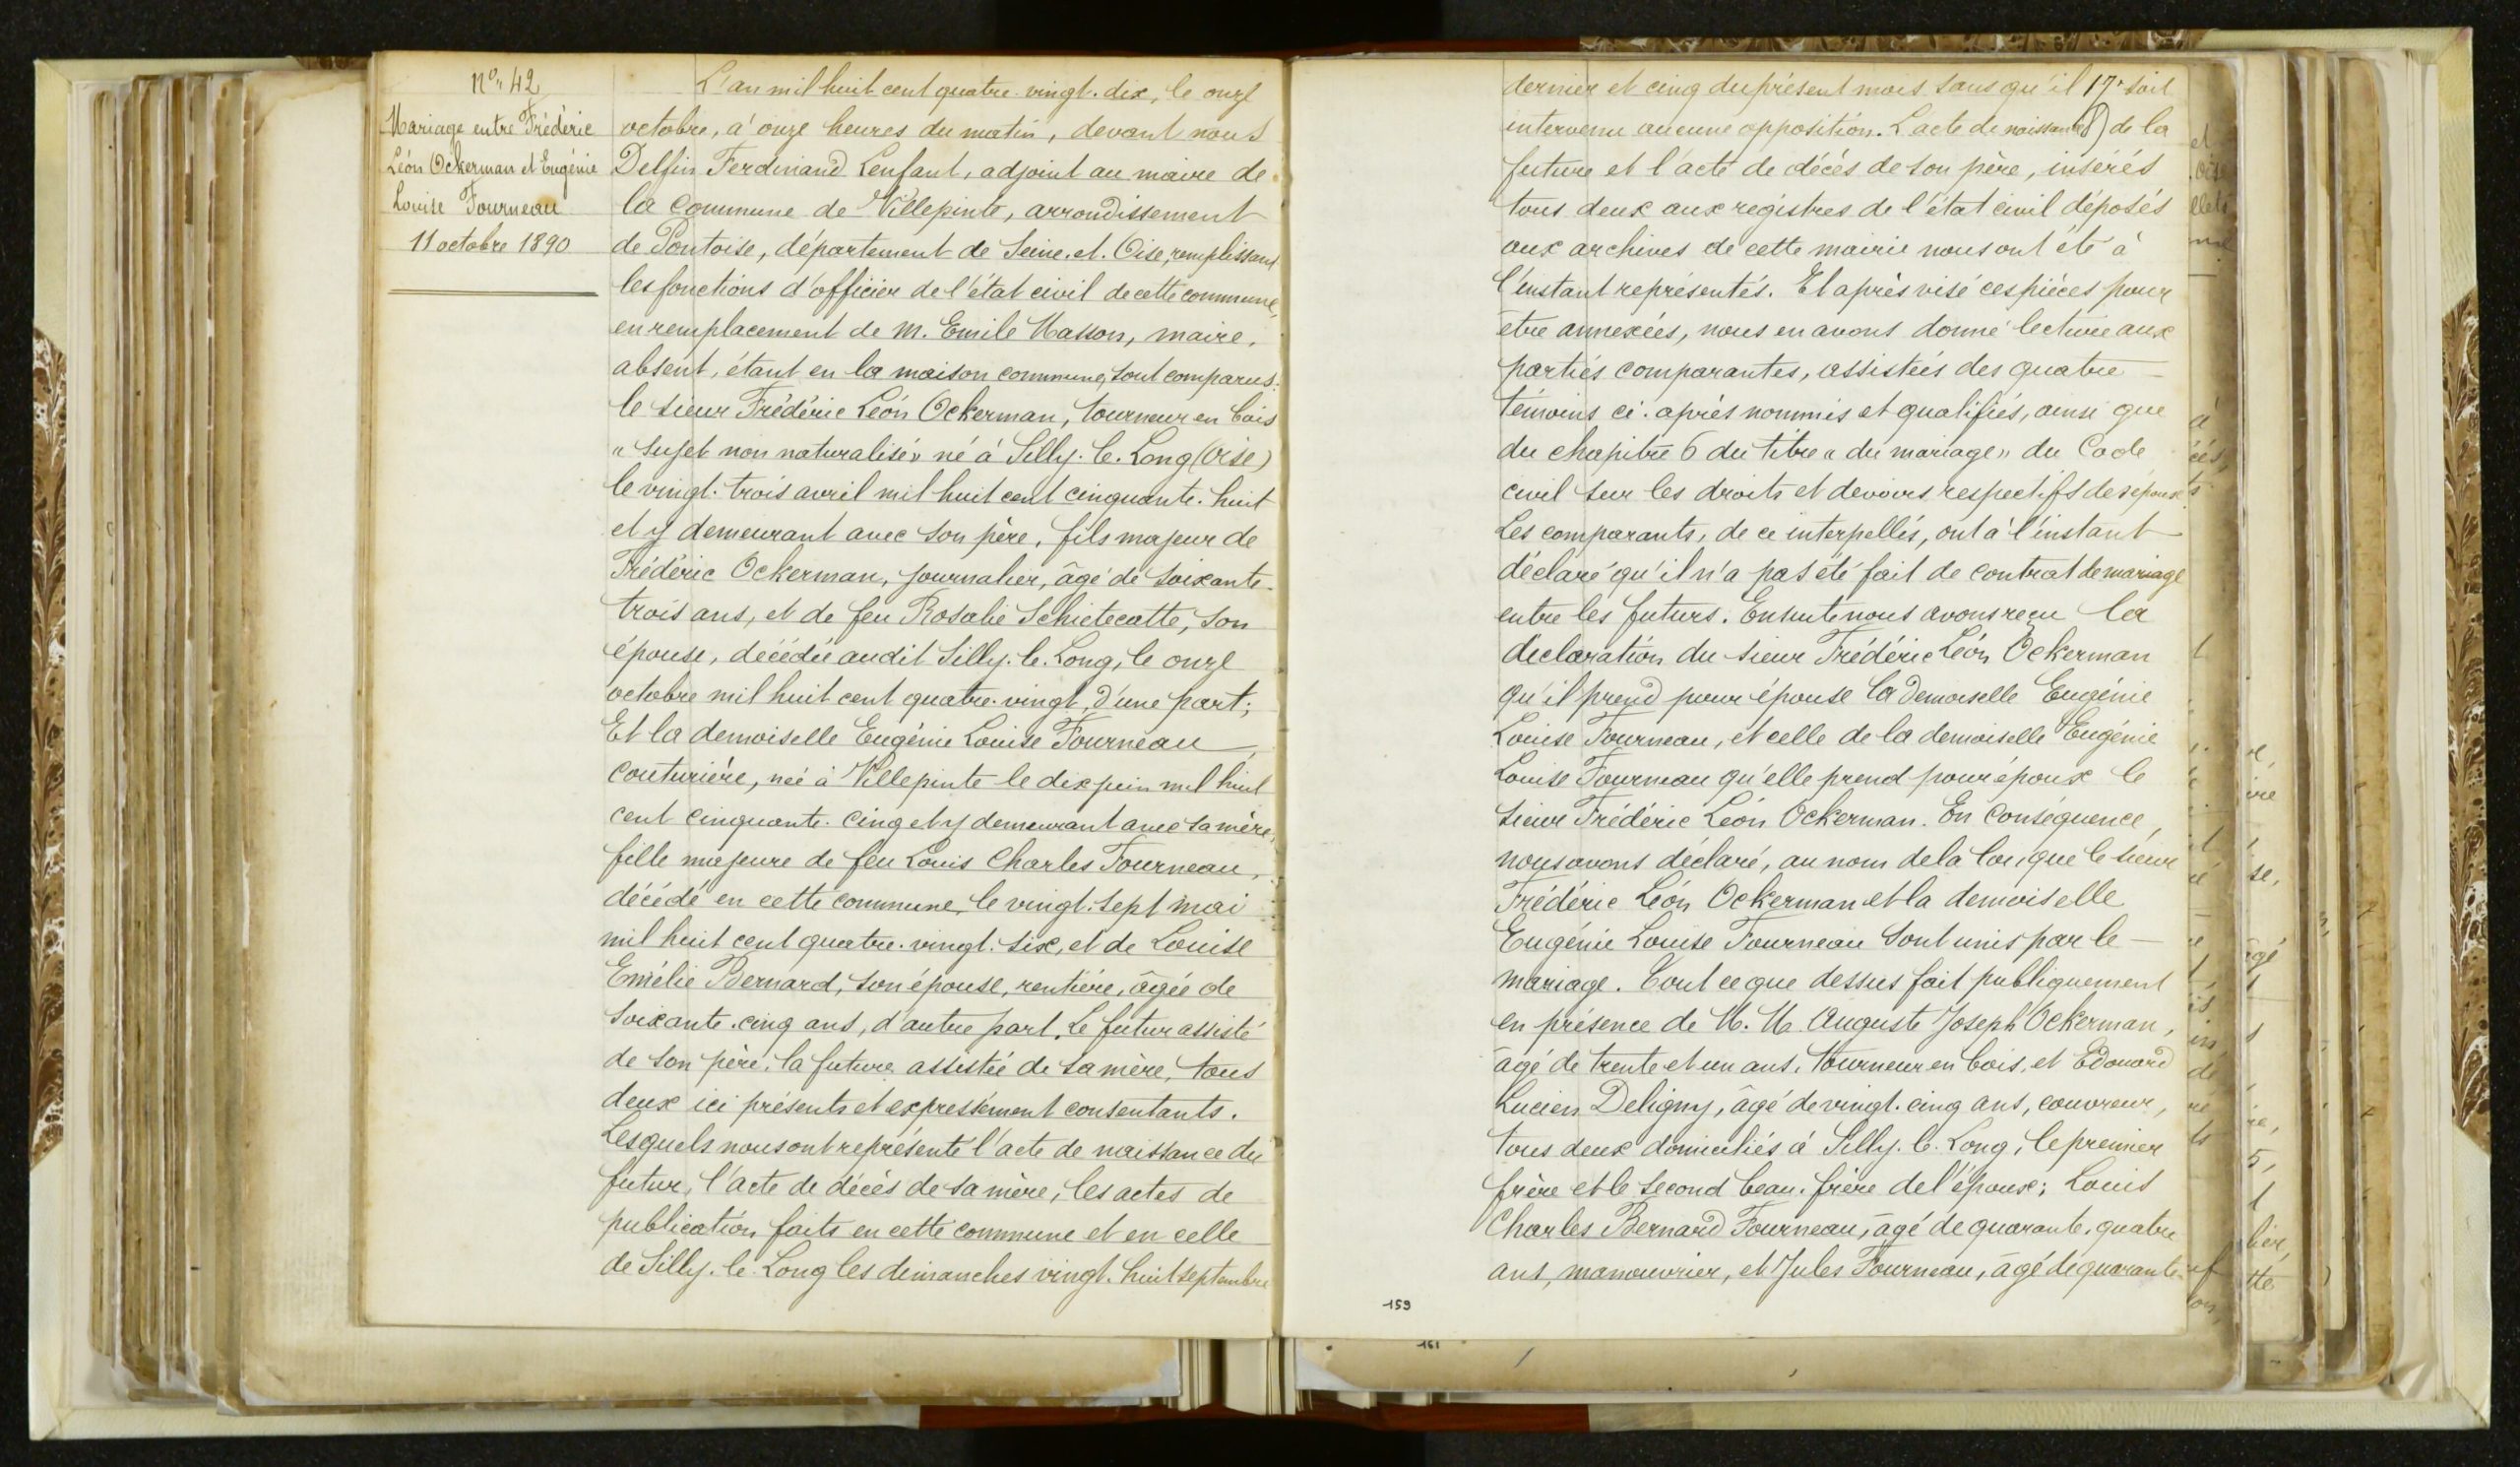 N° 42
Mariage entre Frédéric
Léon Ockerman et Eugénie
Louise Fourneau
11 octobre 1890
L'an mil huit cent quatre-vingt-dix, le onze
octobre, à onze heures du matin, devant nous
Delfin Ferdinand Lenfant, adjoint au maire de
la Commune de Villepinte, arrondissement
de Pontoise, département de Seine-et-Oise, remplissant
les fonctions d'officier de l'état civil de cette commune,
en remplacement de M. Emile Masson, maire,
absent, étant en la maison commune, sont comparus:
le sieur Frédéric Léon Ockerman, tourneur en bois
« sujet non naturalisé » né à Silly-le-Long (Oise)
le vingt-trois avril mil huit cent cinquante-huit
et y demeurant avec son père, fils majeur de
Frédéric Ockerman, journalier, âgé de soixante-
trois ans, et de feu Rosalie Schietecatte, son
épouse, décédée audit Silly-le-Long, le onze
octobre mil huit cent quatre-vingt, d'une part;
Et la demoiselle Eugénie Louise Fourneau,
couturière, née à Villepinte le dix juin mil huit
cent cinquante-cinq et y demeurant avec sa mère,
fille majeure de feu Louis Charles Fourneau,
décédé en cette commune, le vingt-sept mai
mil huit cent quatre-vingt-six, et de Louise
Emélie Bernard, son épouse, rentière, âgée de
soixante-cinq ans, d'autre part. Le futur assisté
de son père, la future assistée de sa mère, tous
deux ici présents et expressément consentants.
Lesquels nous ont représenté l'acte de naissance du
futur, l'acte de décès de sa mère, les actes de
publication faits en cette commune et en celle
de Silly-le-Long les dimanches vingt-huit septembre
dernier et cinq du présent mois sans qu'il y soit
intervenu aucune opposition. L'acte de naissance de la
future et l'acte de décès de son père, insérés
tous deux aux registres de l'état civil déposés
aux archives de cette mairie nous ont été à
l'instant représentés. Et après visé ces pièces pour
être annexées, nous en avons donné lecture aux
parties comparantes, assistées des quatre
témoins ci-après nommés et qualifiés, ainsi que
du chapitre 6 du titre « du mariage » du Code
civil sur les droits et devoirs respectifs des époux.
Les comparants, de ce interpellés, ont à l'instant
déclaré qu'il n'a pas été fait de contrat de mariage
entre les futurs. Ensuite nous avons reçu la
déclaration du sieur Frédéric Léon Ockerman
qu'il prend pour épouse la demoiselle Eugénie
Louise Fourneau, et celle de la demoiselle Eugénie
Louise Fourneau qu'elle prend pour époux le
sieur Frédéric Léon Ockerman. En conséquence,
nous avons déclaré, au nom de la loi, que le sieur
Frédéric Léon Ockerman et la demoiselle
Eugénie Louise Fourneau sont unis par le
mariage. Tout ce que dessus fait publiquement
en présence de M. M. Auguste Joseph Ockerman,
âgé de trente et un ans, tourneur en bois, et Edouard
Lucien Deligny, âgé de vingt-cinq ans, couvreur,
tous deux domiciliés à Silly-le-Long, le premier
frère et le second beau-frère de l'époux; Louis
Charles Bernard Fourneau, âgé de quarante-quatre
ans, manouvrier, et Jules Fourneau, âgé de quarante-
159
161